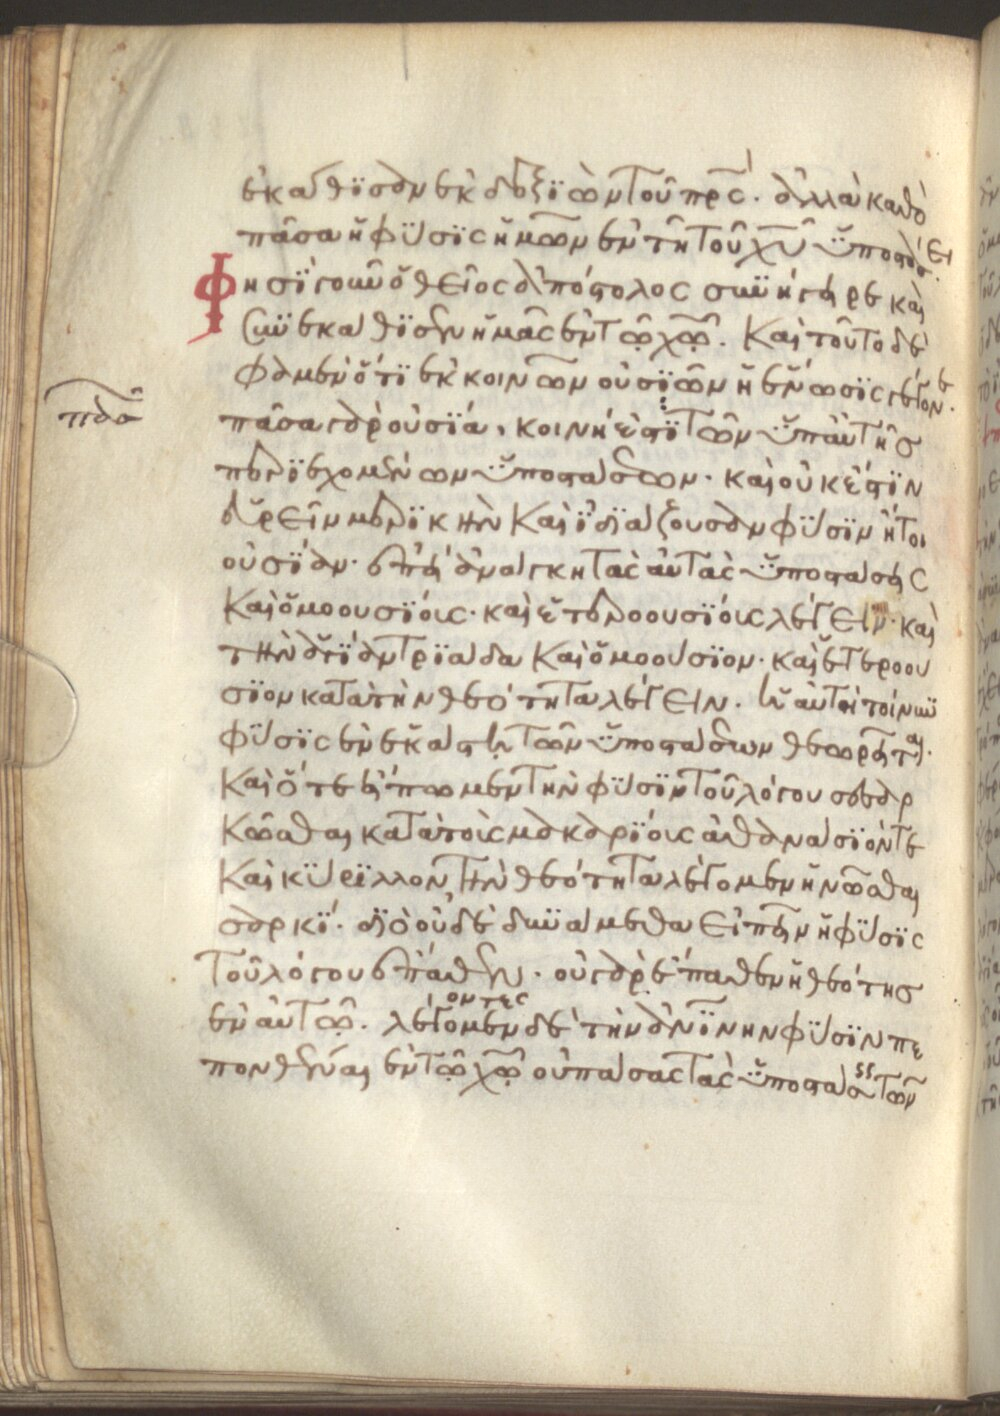 ἐκάθϊσεν ἐκ δεξϊῶν τοῦ πρς. ἀλλὰ καθὸ
πᾶσα ἡ φύσϊς ἡμῶν ἐν τῆ τοῦ χυ ὑποστάσει.
Φησϊ γοῦν ὁ θεῖος ἀπόστολος συνήγειρε καὶ
συνεκάθϊσεν ἡμᾶς ἐν τῶ χω. Καὶ τοῦτο δέ
φαμεν ὅτϊ ἐκ κοινῶν οὐσϊῶν ἡ ἕνωσϊς γέγονε.
πᾶσα γὰρ οὐσϊα, κοινή ἐστϊ τῶν ὑπ' αὐτῆς
περϊεχομένων ὑποστάσεων. καὶ οὐκ ἔστϊν
εὑρεῖν μερϊκὴν καὶ ἰδϊάζουσαν φύσϊν ἤτοι
οὐσίαν. ἐπεὶ ἀνάγκη τὰς αὐτὰς ὑποστάσεις
καὶ ὁμοουσϊους. καὶ ἑτεροουσϊους λέγειν. καὶ
τὴν ἁγίαν τρϊάδα καὶ ὁμοούσϊον. καὶ ἑτεροού
σϊον κατὰ τὴν θεότητα λέγειν. ἡ αὐτὴ τοίνυν
φύσϊς ἐν ἑκάστη τῶν ὑποστάσεων θεωρεῖται.
Καὶ ὅτε εἴπωμεν τὴν φύσϊν τοῦ λόγου σεσαρ
κῶσθαι κατὰ τοὺς μακαρϊους ἀθανάσϊόν τε
καὶ κύρϊλλον τὴν θεότητα λέγομεν ἡνῶσθαι
σαρκϊ. διὸ οὐδὲ δυνάμεθα εἰπεῖν ἡ φύσϊς
τοῦ λόγου ἔπαθεν. οὐ γὰρ ἔπαθεν ἡ θεότης
ἐν αὐτῶ. λέγομεν οντες δὲ τὴν ἀνϊνην φύσϊν πε
πονθέναι ἐν τῶ χω οὐ πάσας τὰς ὑποστάσεις τῶν